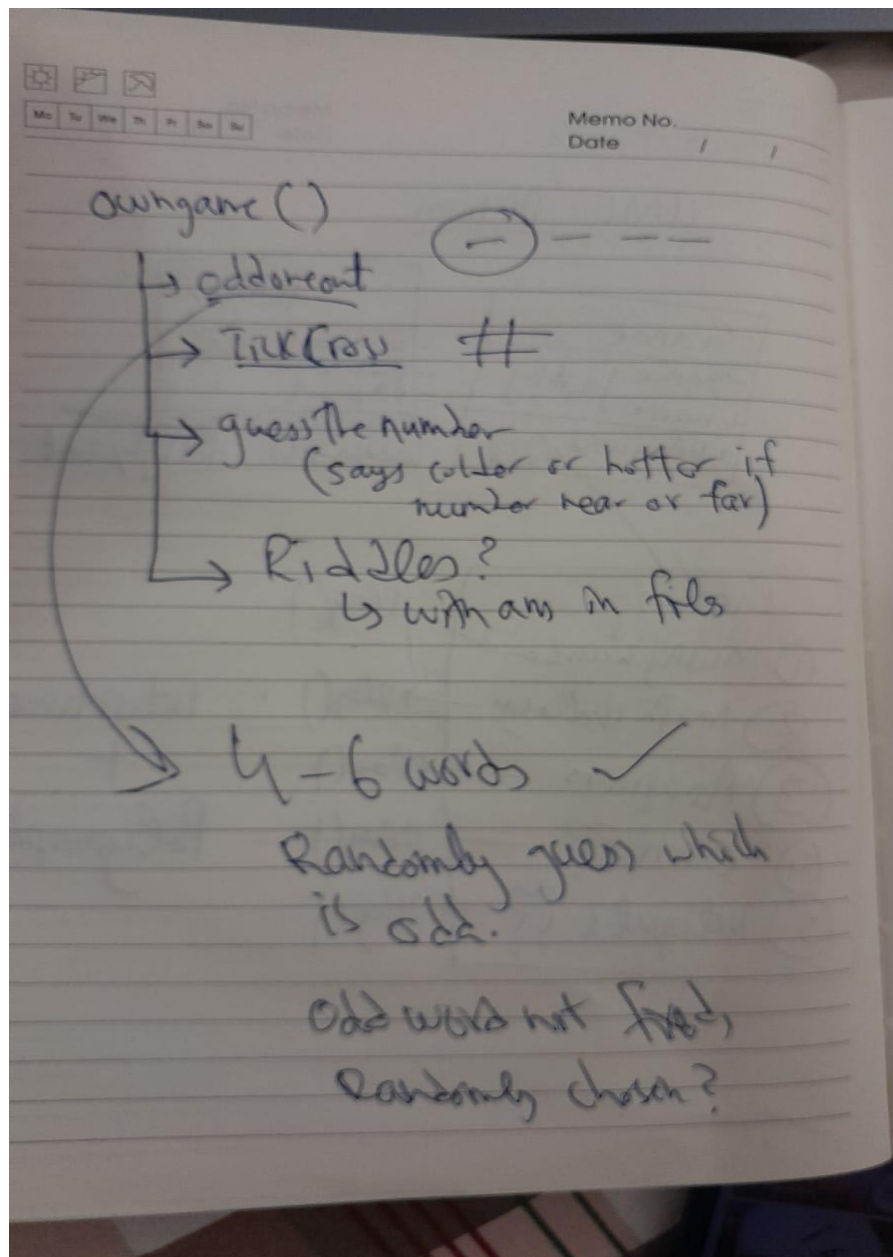 Mo Tu We Th Fr Sa Su
Memo No.
Date / /
owngame ()
oddoneout
guess the number
(says colder or hotter if
number near or far)
Riddles?
with ans in files
4-6 words ✓
Randomly guess which
is odd.
Odd word not fixed,
Randomly chosen?